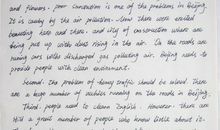 and flowers. Poor construction is one of the problems in Beijing.
It is caused by the air pollution. Now there were
here and there. and city of construction where are
being put up with dust rising in the air. On the roads are
running cars with discharged gas polluting air. Beijing needs to
provide people with clean environment.
Second. The problem of heavy traffic should be solved. There are
a huge number of vehicles running on the roads in Beijing.
Third. people need to learn English. However. There are
still a great number of people who know little about it.